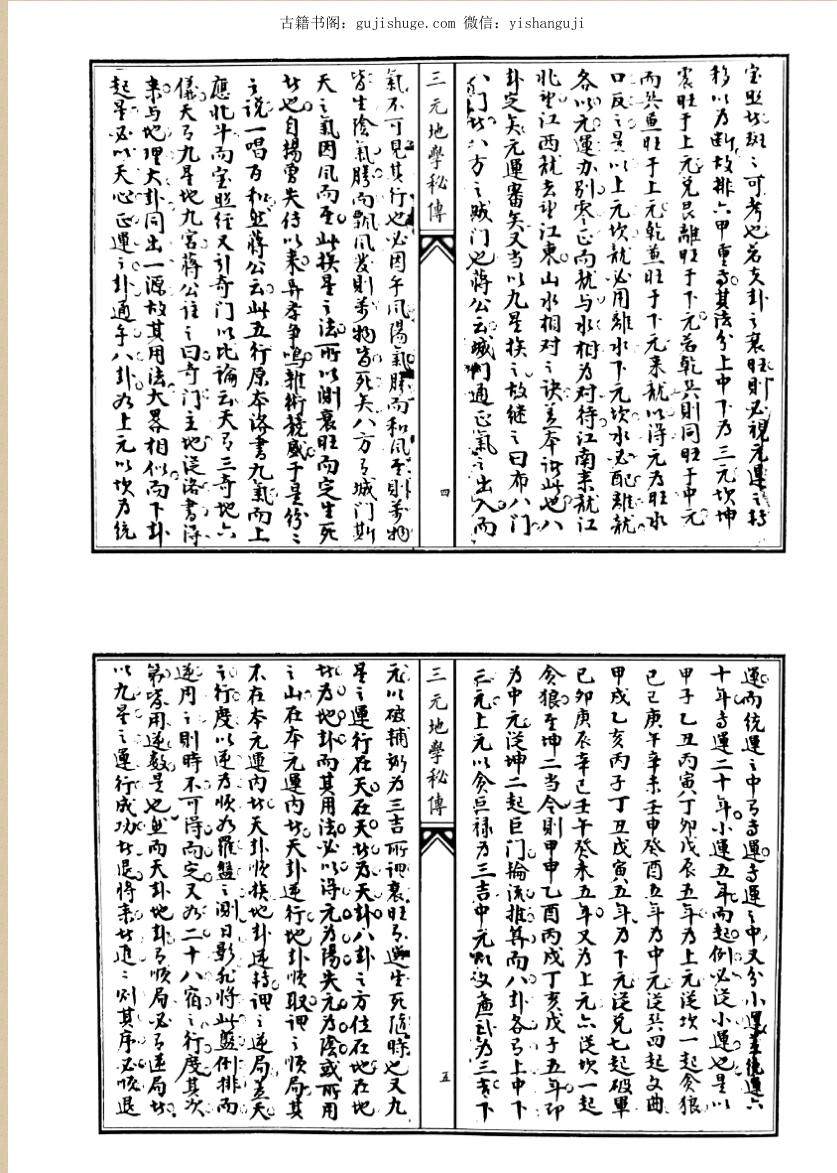 古籍书阁：gujishuge.com 微信：yishanguji
宝照皆斑之可考也若夫卦之衰旺则必視元運之轉
移以为断故排六甲重其法分上中下为三元坎坤
震旺于上元兑艮離旺于下元若乾巽則同旺于中元
而巽兼旺于上元乾兼旺于下元来龍以得元为旺水
口反之是以上元坎龍必用離水下元坎水必配離龍
各以元運办别零正而龍与水相为对待江南来龍江
北望江西龍去望江東山水相对之诀盖本諸此也八
卦定矣元運審矣又当以九星挨之故継之曰布八门
八门皆八方之城门也蔣公云城门通正氣之出入而
三元地學秘傳
四
氣不可見其行也必因乎风陽氣勝而和风至則萬物
皆生陰氣勝而飘风发則萬物皆死矣八方有城门斯
天之氣因风而至此挨星之法所以測衰旺而定生死
者也自楊曾失传以来异孝争鸣雜術競盛于是紛之
之说一唱百和然蔣公云此五行原本洛書九氣而上
應北斗而宝照经又引奇门以比論云天有三奇地六
儀天有九星地九宫蔣公註之曰奇门主地從洛書海
来与地理大卦同出一源故其用法大畧相似而下卦
起星必以天心正運之卦通乎八卦如上元以坎为统
運而統運之中有專運專運之中又分小運盖統運六
十年專運二十年小運五年而起例必從小運也是以
甲子乙丑丙寅丁卯戊辰五年为上元從坎一起貪狼
己巳庚午辛未壬申癸酉五年为中元從巽四起文曲
甲戌乙亥丙子丁丑戊寅五年为下元從兑七起破軍
己卯庚辰辛巳壬午癸未五年又为上元六從坎一起
貪狼至坤二当令則甲申乙酉丙戌丁亥戊子五年即
为中元從坤二起巨门掄流推算而八卦各有上中下
三元上元以貪巨禄为三吉中元以文廉武为三吉下
三元地學秘傳
五
元以破輔弼为三吉所謂衰旺有運生死隨時也又九
星之運行在天在天者为天卦八卦之方位在地在地
者为地卦而其用法必以得元为陽失元为陰或所用
之山在本元運内者天卦逆行地卦順取謂之順局其
不在本元運内者天卦順挨地卦逆轉謂之逆局盖天
之行度以逆为順如羅盤之測日影然將此盤例排而
逆用之則時不可得而定又如二十八宿之行度其次
第皆用逆数是也然而天卦地卦有順局必有逆局者
以九星之運行成功者退將来者進之則其序必順退